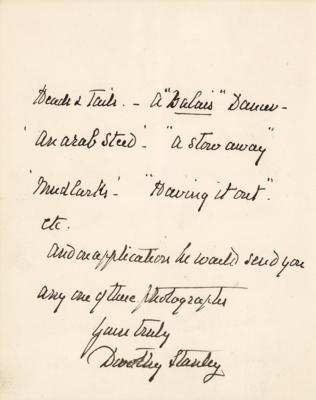 Heads & Tails. - A "Balais" Dancer -
'An arab Steed'. - "a stow away"
'Mudlarks'. - "Having it out".
etc.
And on application he would send you
any one of these photographs
Yours truly
Dorothy Stanley